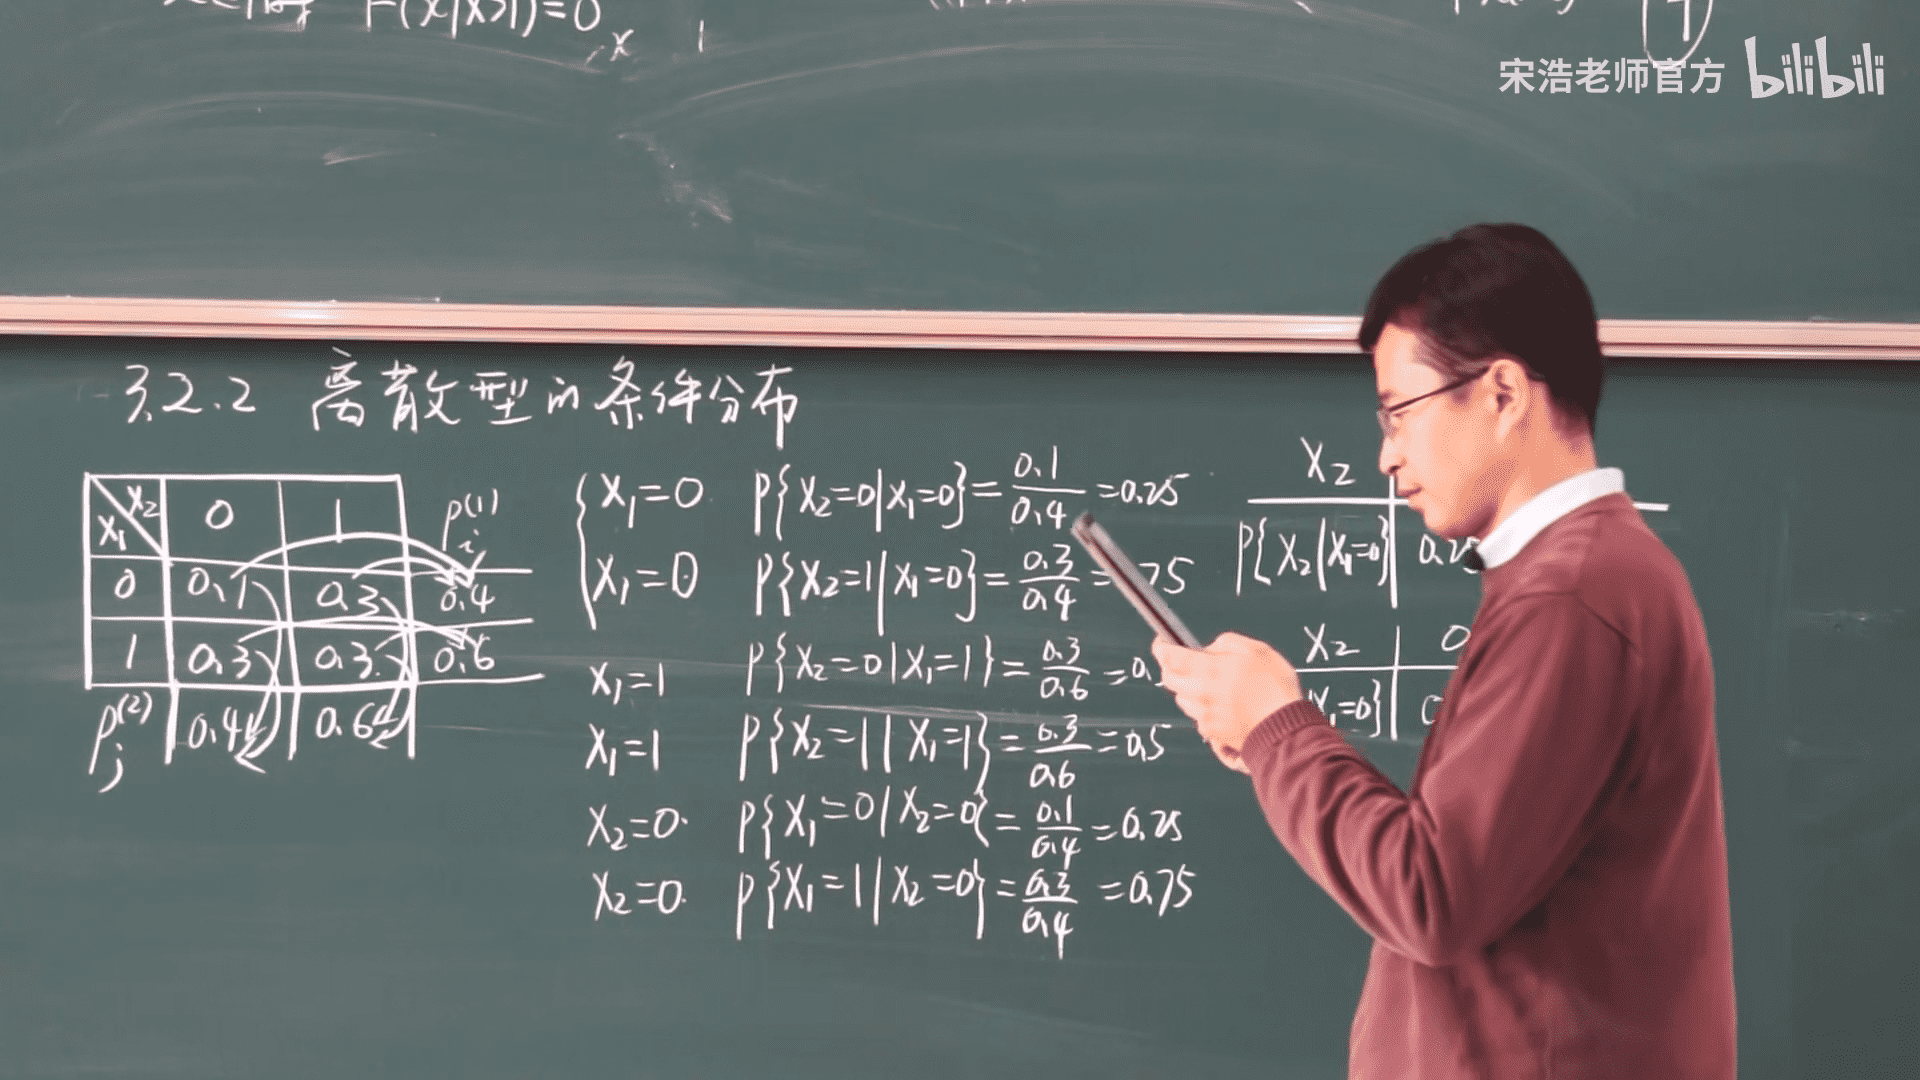 F(x|X>1)=0
x 1
宋浩老师官方 bilibili
3.2.2 离散型的条件分布
X₂ 0 1 Pᵢ⁽¹⁾
X₁
0 0.1 0.3 0.4
1 0.3 0.3 0.6
Pⱼ⁽²⁾ 0.4 0.6
X₁=0 P{X₂=0|X₁=0}=0.1/0.4=0.25
X₁=0 P{X₂=1|X₁=0}=0.3/0.4= 75
X₁=1 P{X₂=0|X₁=1}=0.3/0.6=0.
X₁=1 P{X₂=1|X₁=1}=0.3/0.6=0.5
X₂=0 P{X₁=0|X₂=0}=0.1/0.4=0.25
X₂=0 P{X₁=1|X₂=0}=0.3/0.4=0.75
X₂
P{X₂|X₁=0} 0.25
X₂ 0
X₁=0} 0